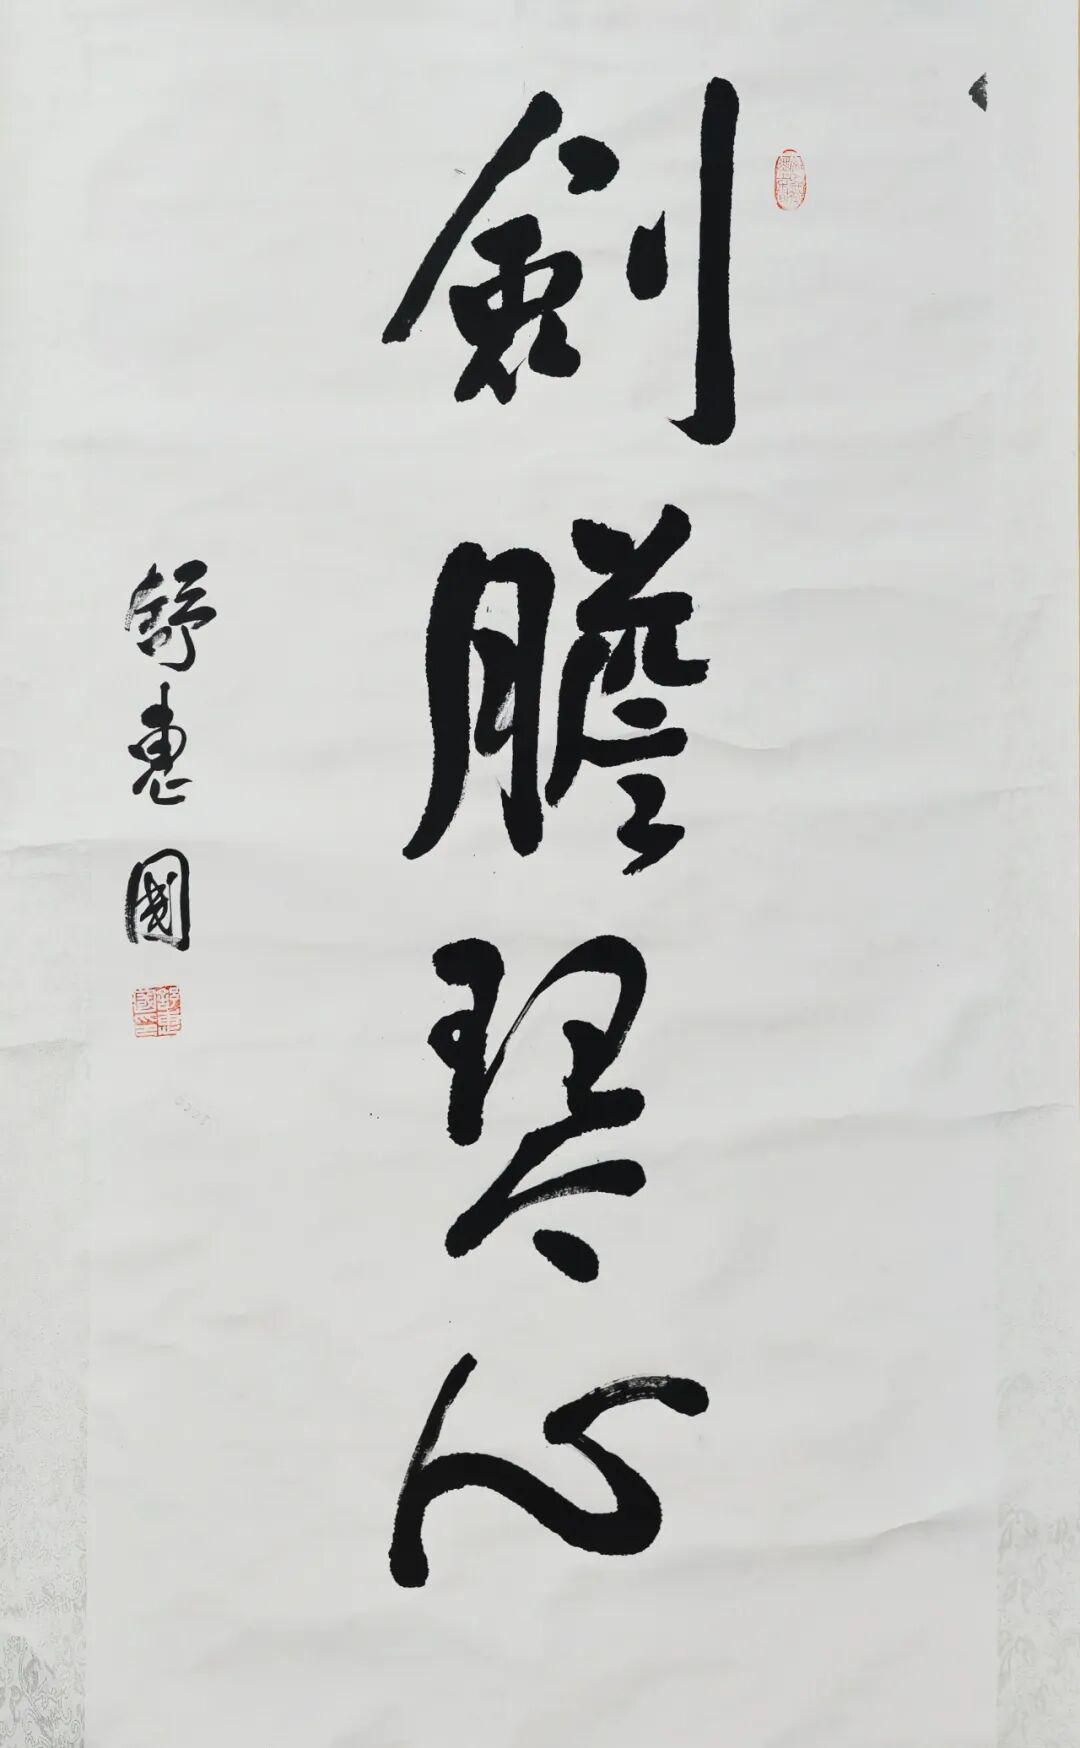 劍膽琴心
舒惠國